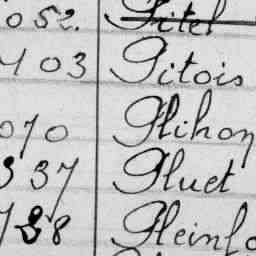 052. Pitel
403 Pitois
070 Plihon
337 Pluet
738 Pleinfo